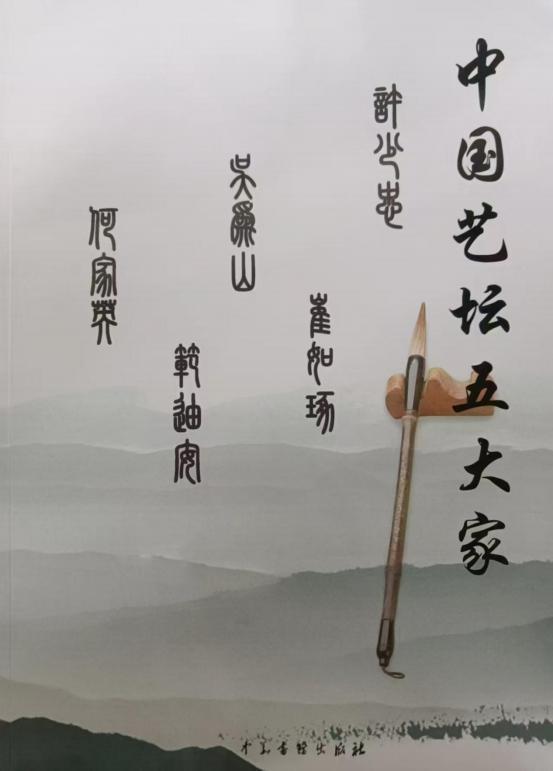 中国艺坛五大家
許少忠
崔如琢
吳爲山
範迪安
何家英
出版社